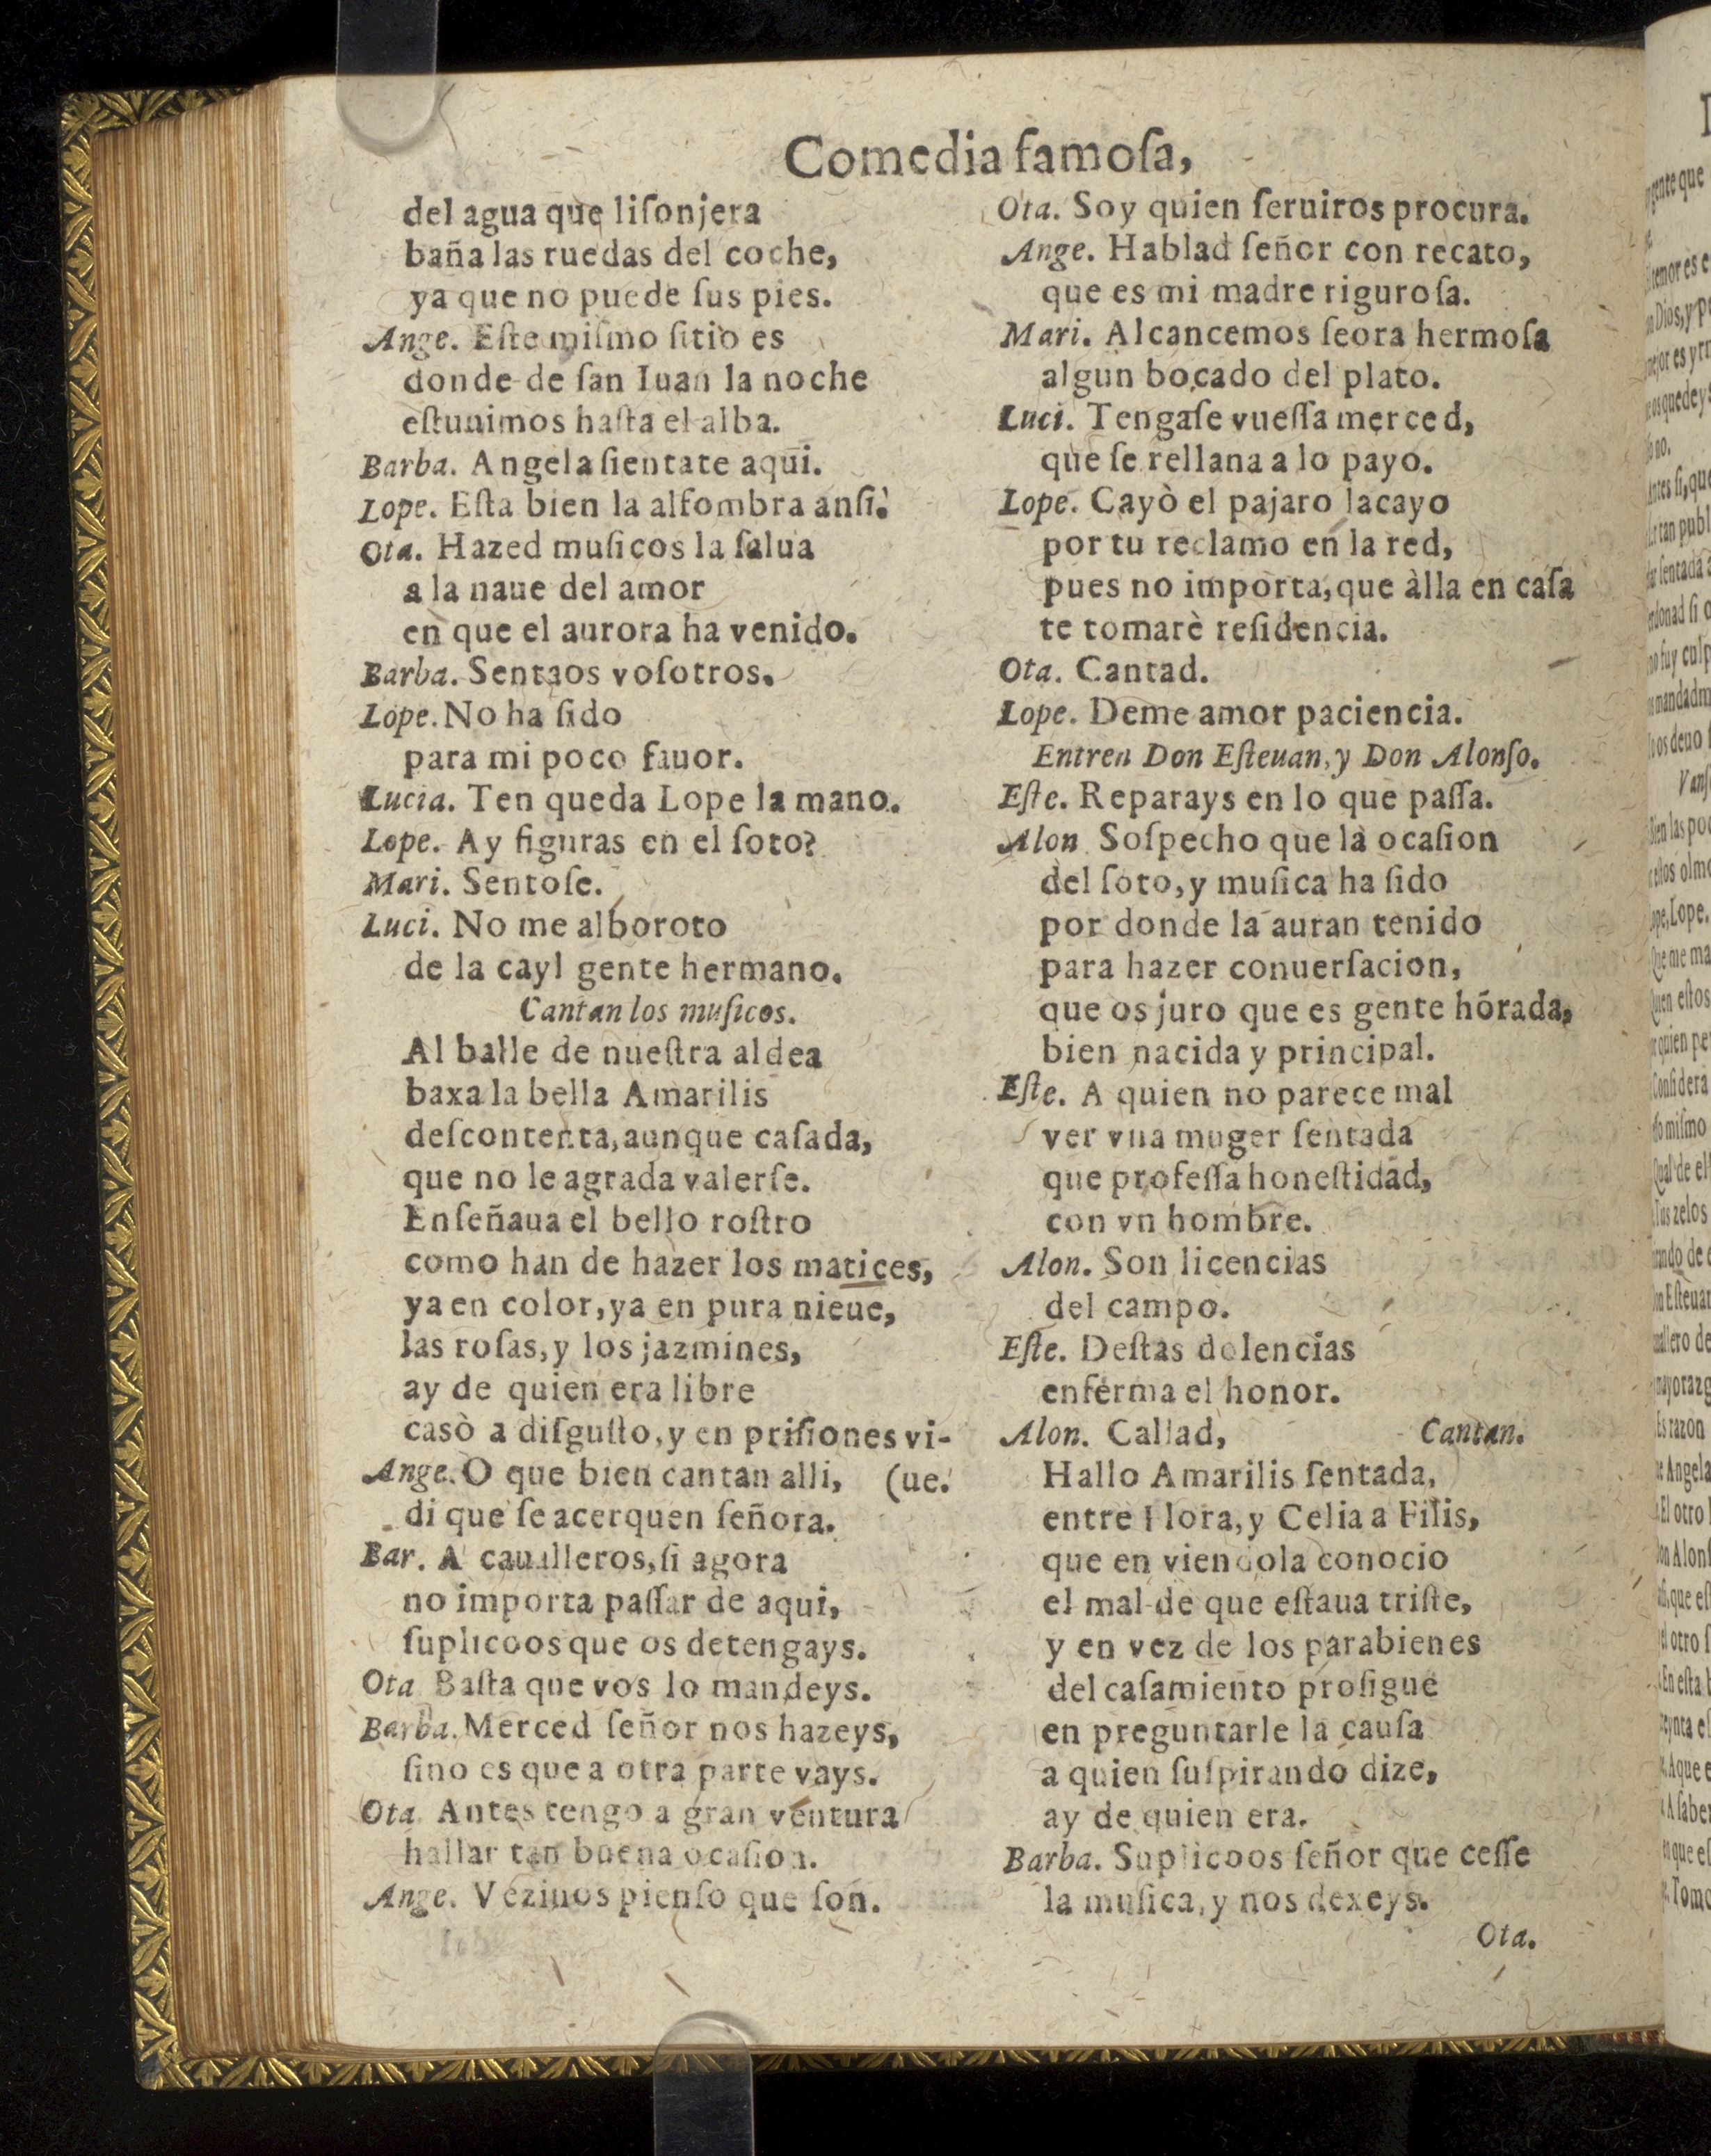 Comedia famoſa,
del agua que liſonjera
baña las ruedas del coche,
ya que no puede ſus pies.
Ange. Eſte miſmo ſitio es
donde de ſan Iuan la noche
eſtuuimos haſta el alba.
Barba. Angela ſientate aqui.
Lope. Eſta bien la alfombra anſi.
Ota. Hazed muſicos la ſalua
a la naue del amor
en que el aurora ha venido.
Barba. Sentaos voſotros.
Lope. No ha ſido
para mi poco fauor.
Lucia. Ten queda Lope la mano.
Lope. Ay figuras en el ſoto?
Mari. Sentoſe.
Luci. No me alboroto
de la cayl gente hermano.
Cantan los muſicos.
Al balle de nueſtra aldea
baxa la bella Amarilis
deſcontenta, aunque caſada,
que no le agrada valerſe.
Enſeñaua el bello roſtro
como han de hazer los matices,
ya en color, ya en pura nieue,
las roſas, y los jazmines,
ay de quien era libre
casò a diſguſto, y en priſiones vi-
Ange. O que bien cantan alli, (ue.
di que ſe acerquen ſeñora.
Bar. A caualleros, ſi agora
no importa paſſar de aqui,
ſuplicoos que os detengays.
Ota Baſta que vos lo mandeys.
Barba. Merced ſeñor nos hazeys,
ſino es que a otra parte vays.
Ota. Antes tengo a gran ventura
hallar tan buena ocaſion.
Ange. Vezinos pienſo que ſon.
Ota. Soy quien ſeruiros procura.
Ange. Hablad ſeñor con recato,
que es mi madre riguroſa.
Mari. Alcancemos ſeora hermoſa
algun bocado del plato.
Luci. Tengaſe vueſſa merced,
que ſe rellana a lo payo.
Lope. Cayò el pajaro lacayo
por tu reclamo en la red,
pues no importa, que àlla en caſa
te tomarè reſidencia.
Ota. Cantad.
Lope. Deme amor paciencia.
Entren Don Eſteuan, y Don Alonſo.
Eſte. Reparays en lo que paſſa.
Alon. Soſpecho que la ocaſion
del ſoto, y muſica ha ſido
por donde la auran tenido
para hazer conuerſacion,
que os juro que es gente hõrada,
bien nacida y principal.
Eſte. A quien no parece mal
ver vna muger ſentada
que profeſſa honeſtidad,
con vn hombre.
Alon. Son licencias
del campo.
Eſte. Deſtas dolencias
enferma el honor.
Alon. Callad, Cantan.
Hallo Amarilis ſentada,
entre Flora, y Celia a Filis,
que en viendola conocio
el mal de que eſtaua triſte,
y en vez de los parabienes
del caſamiento proſigue
en preguntarle la cauſa
a quien ſuſpirando dize,
ay de quien era.
Barba. Suplicoos ſeñor que ceſſe
la muſica, y nos dexeys.
Ota.